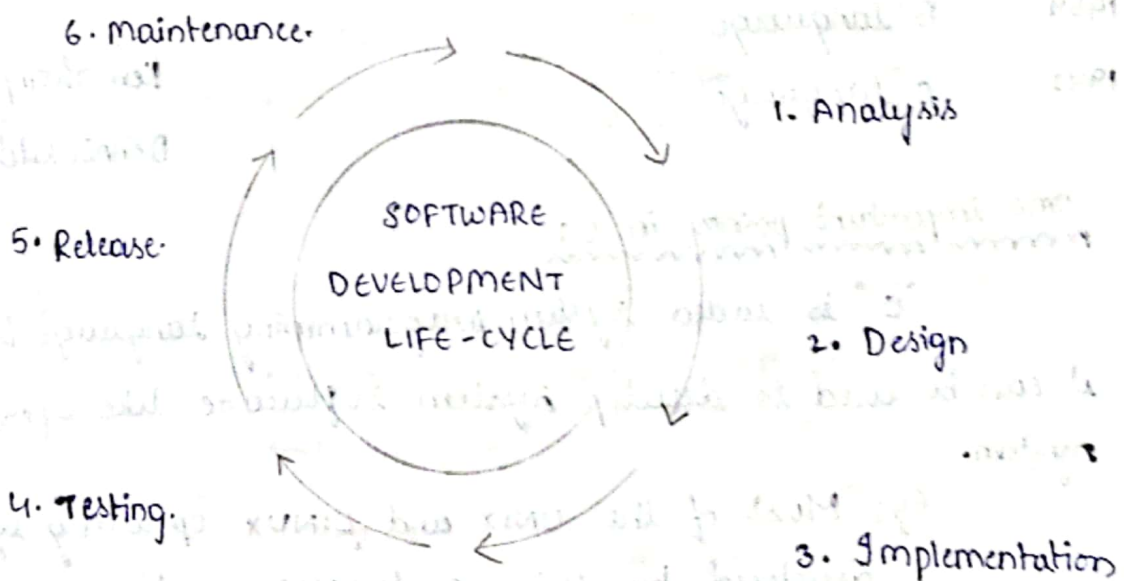 6. Maintenance.
1. Analysis
SOFTWARE
5. Release.
DEVELOPMENT
LIFE-CYCLE
2. Design
4. Testing.
3. Implementation